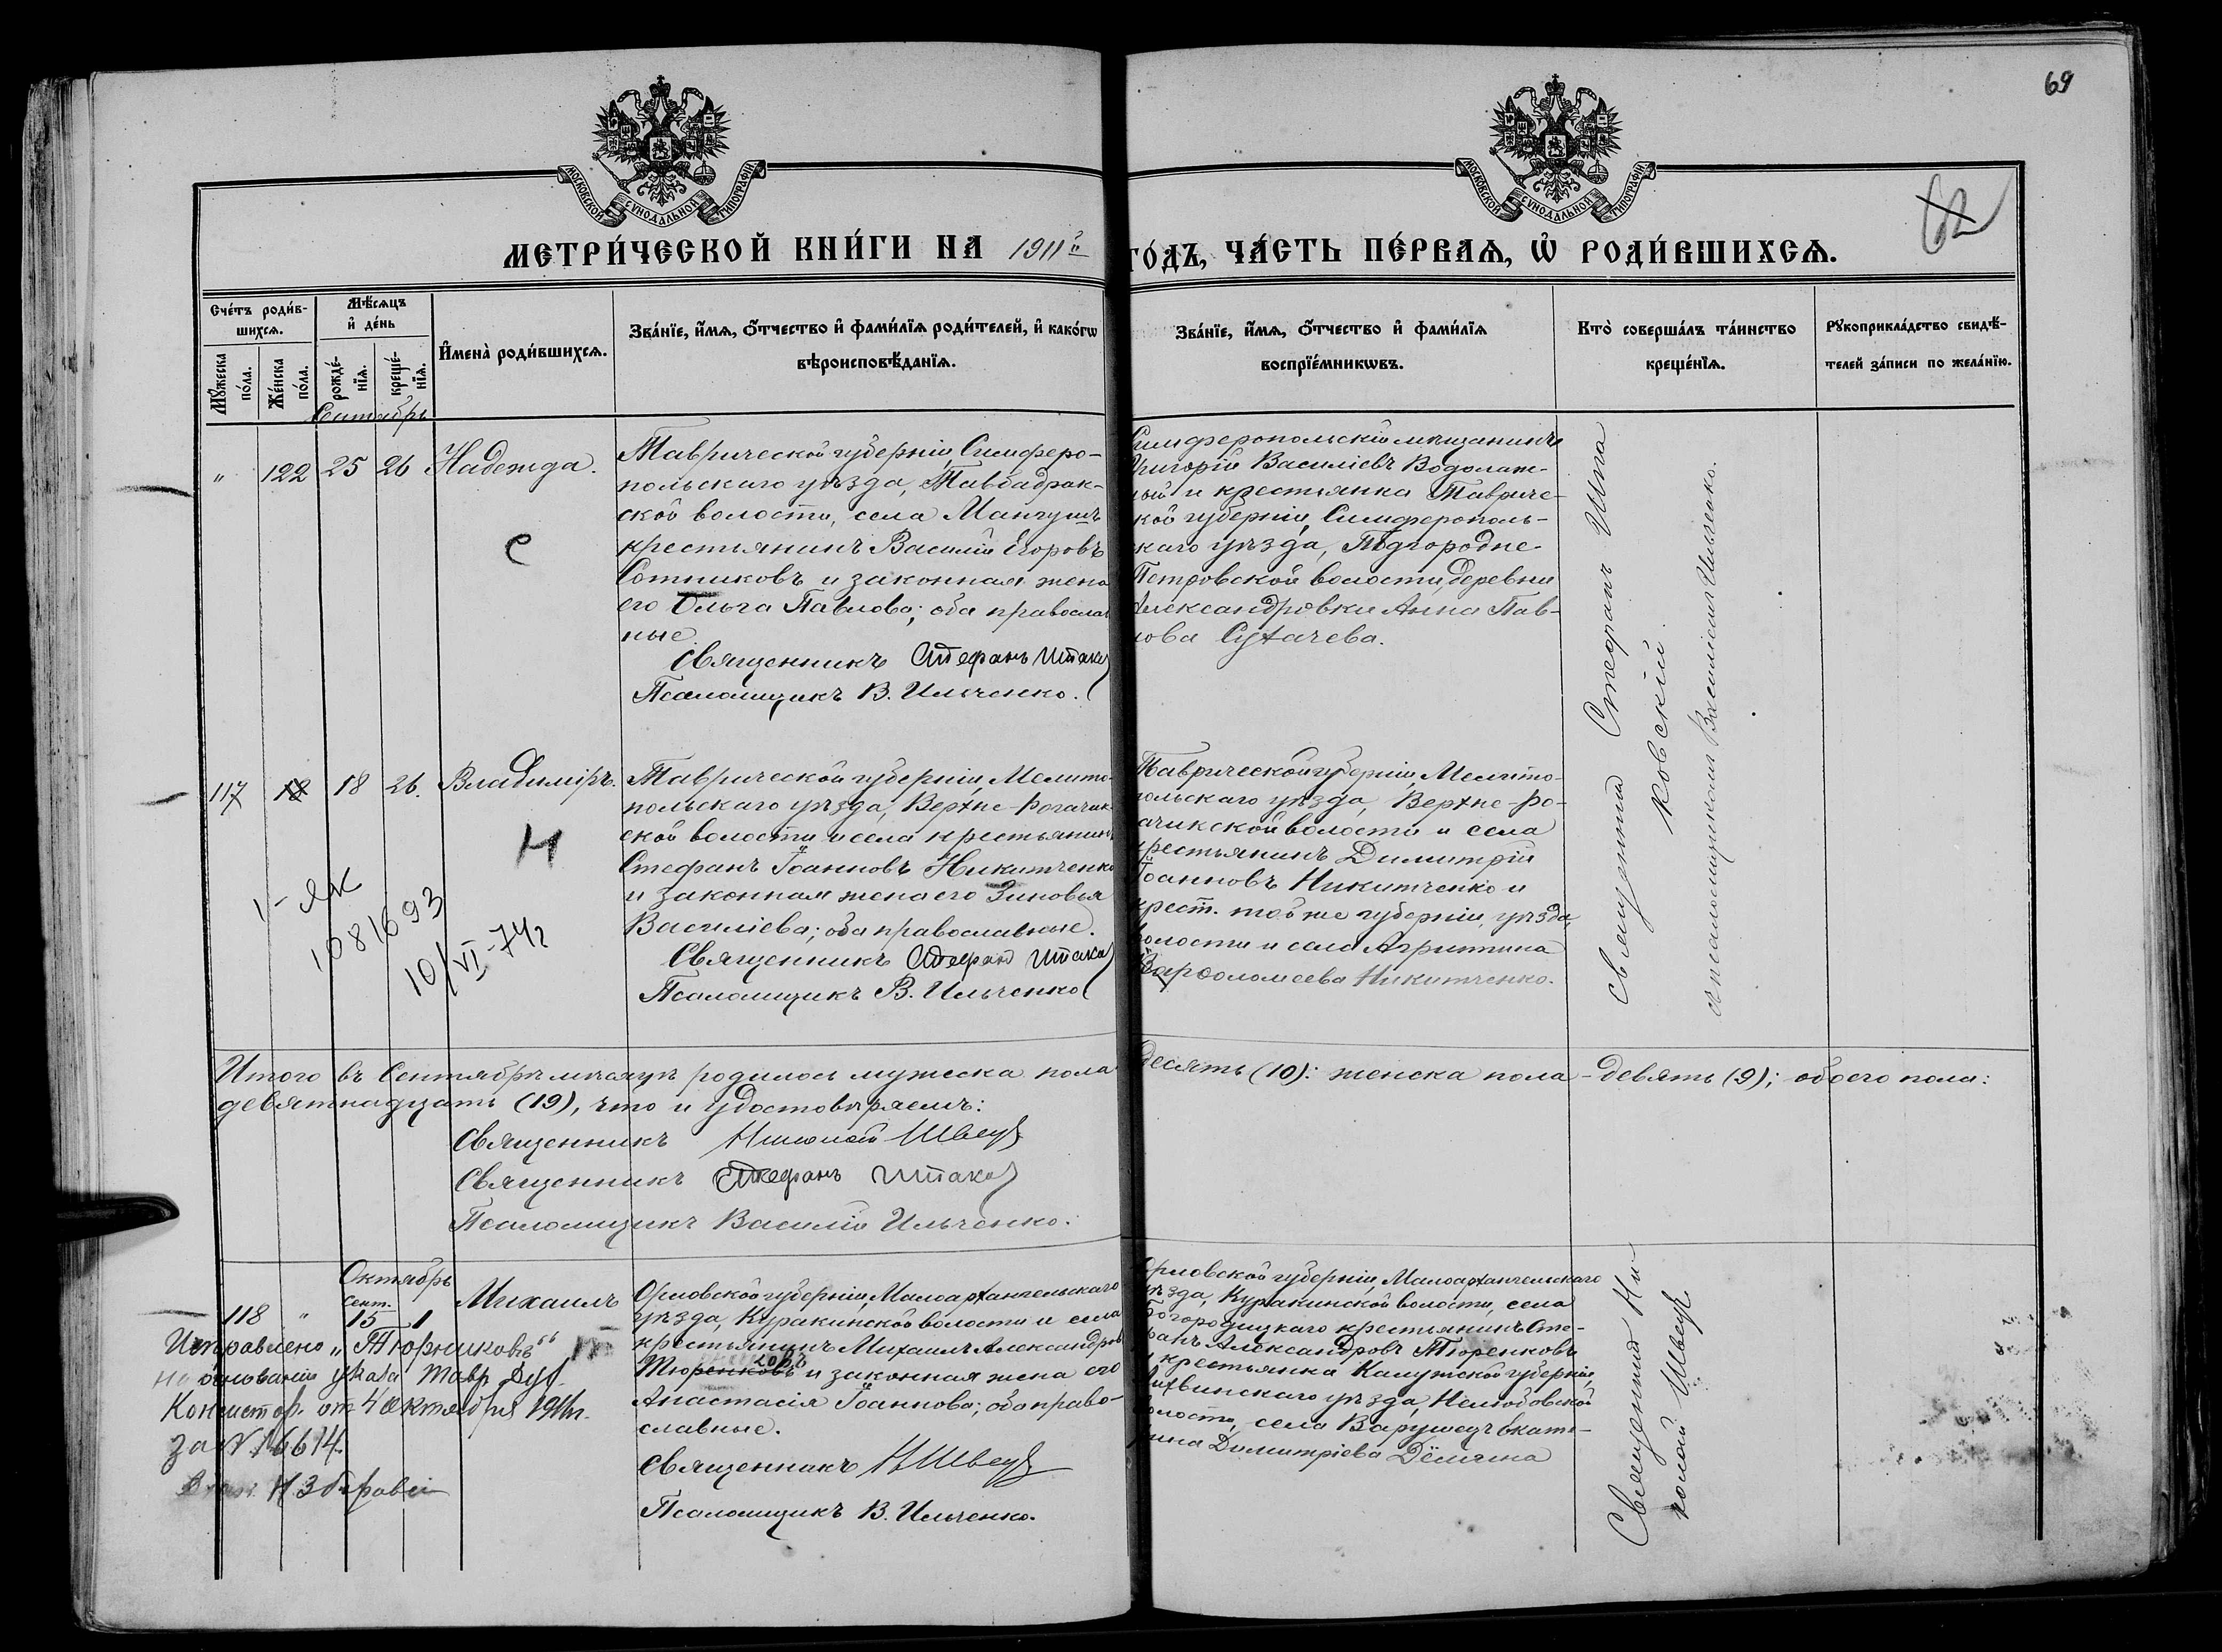 69
МОСКОВСКОЙ СУНОДАЛЬНОЙ ТИПОГРАФІИ.
МОСКОВСКОЙ СУНОДАЛЬНОЙ ТИПОГРАФІИ.
МЕТРИ́ЧЕСКОЙ КНИ́ГИ НА 1911й
ГО́ДЪ, ЧА́СТЬ ПЕ́РВАѦ, Ѡ РОДИ́ВШИХСѦ.
Сче́тъ роди́в-
шихсѧ.
Мѣ́сѧцъ
и де́нь
Мꙋ́жеска
по́ла.
Же́нска
по́ла.
рожде́-
нїѧ.
креще́-
нїѧ.
Имена̀ роди́вшихсѧ.
Зва́нїе, и́мѧ, ѻ́тчество и фами́лїѧ роди́телей, и како́гѡ
вѣроисповѣ́данїѧ.
Зва́нїе, и́мѧ, ѻ́тчество и фами́лїѧ
воспрїе́мникѡвъ.
Кто̀ соверша́лъ та́инство
креще́нїѧ.
Рꙋкоприкла́дство свидѣ́-
телей за́писи по жела́нїю.
Сентябрь
" 122 25 26 Надежда.
Таврической губерніи, Симферо-
польскаго уѣзда, Тавбадрак-
ской волости, села Мангушъ
крестьянинъ Василій Егоровъ
Сотниковъ и законная жена
его Ольга Павлова; оба православ
ные.
Священникъ Стефанъ Штак
Псаломщикъ В. Ильченко.
С
Симферопольскій мѣщанинъ
Григорій Василіевъ Водолаж-
ный и крестьянка Тавриче-
кой губерніи, Симферополь-
скаго уѣзда, Подгородне-
Петровской волости, деревни
Александровки Анна Пав-
лова Сухачева.
Священникъ Стефанъ Шта
ковскій.
съ псаломщикомъ Василіемъ Ильченко.
117 18 26. Владиміръ.
Таврической губерніи, Мелито-
польскаго уѣзда, Верхне-Рогачик-
ской волости и села крестьянинъ
Стефанъ Іоанновъ Никитченко
и законная жена его Зиновья
Василіева; оба православные.
Священникъ Стефанъ Штак
Псаломщикъ В. Ильченко
Н
1081693
10/VI-74г
Таврической губерніи, Мелито-
польскаго уѣзда, Верхне-Ро-
ачикской волости и села
крестьянинъ Димитрій
Іоанновъ Никитченко и
крест. той же губерніи, уѣзда,
волости и села Агриппина
Варѳоломеева Никитченко.
Итого въ Сентябрѣ мѣсяцѣ родилось мужеска пола десять (10): женска пола - девять (9); обоего пола:
девятнадцать (19), что и удостовѣряемъ:
Священникъ Николай Швецъ
Священникъ Стефанъ Штак
Псаломщикъ Василій Ильченко.
Октябрь
Сент.
118 " 15 1 Михаилъ
Исправлено „Тюрниковъ“
на основаніи указа Тавр. Дух.
Консистор. от 4 октября 1911г.
за № 16614.
Орловской губерніи, Малоархангельскаго
уѣзда, Куракинской волости и села
крестьянинъ Михаилъ Александровъ
Тюренковъ и законная жена его
Анастасія Іоаннова; оба право-
славные.
Священникъ Н Швецъ
Псаломщикъ В. Ильченко.
Орловской губерніи, Малоархангельскаго
уѣзда, Куракинской волости, села
Богородицкаго крестьянинъ Сте-
фанъ Александровъ Тюренковъ
и крестьянка Калужской губерніи,
Лихвинскаго уѣзда,
волости, села
Димитріева Дёмина
Священникъ Ни-
колай Швецъ